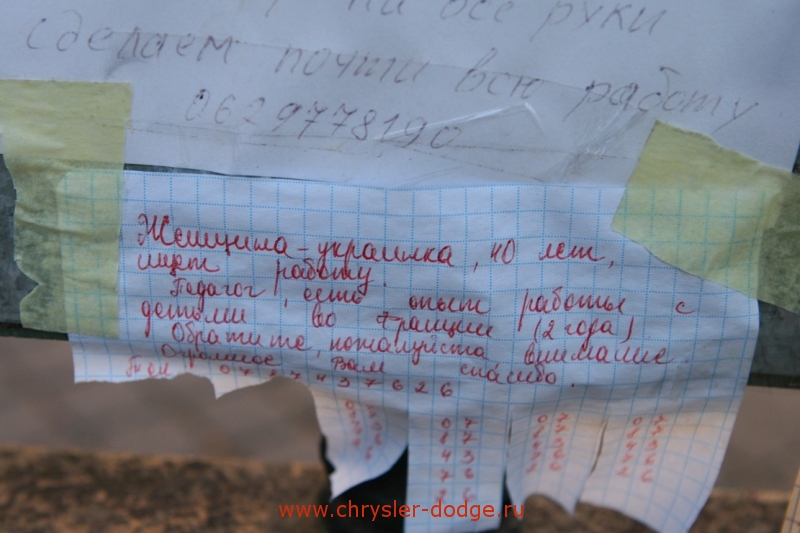 на все руки
сделаем почти всю работу
0629778190
Женщина-украинка, 40 лет,
ищет работу.
Педагог, есть опыт работы с
детьми во Франции (2 года)
Обратите, пожалуйста внимание.
Огромное Вам спасибо.
07
87
43
76
26
www.chrysler-dodge.ru